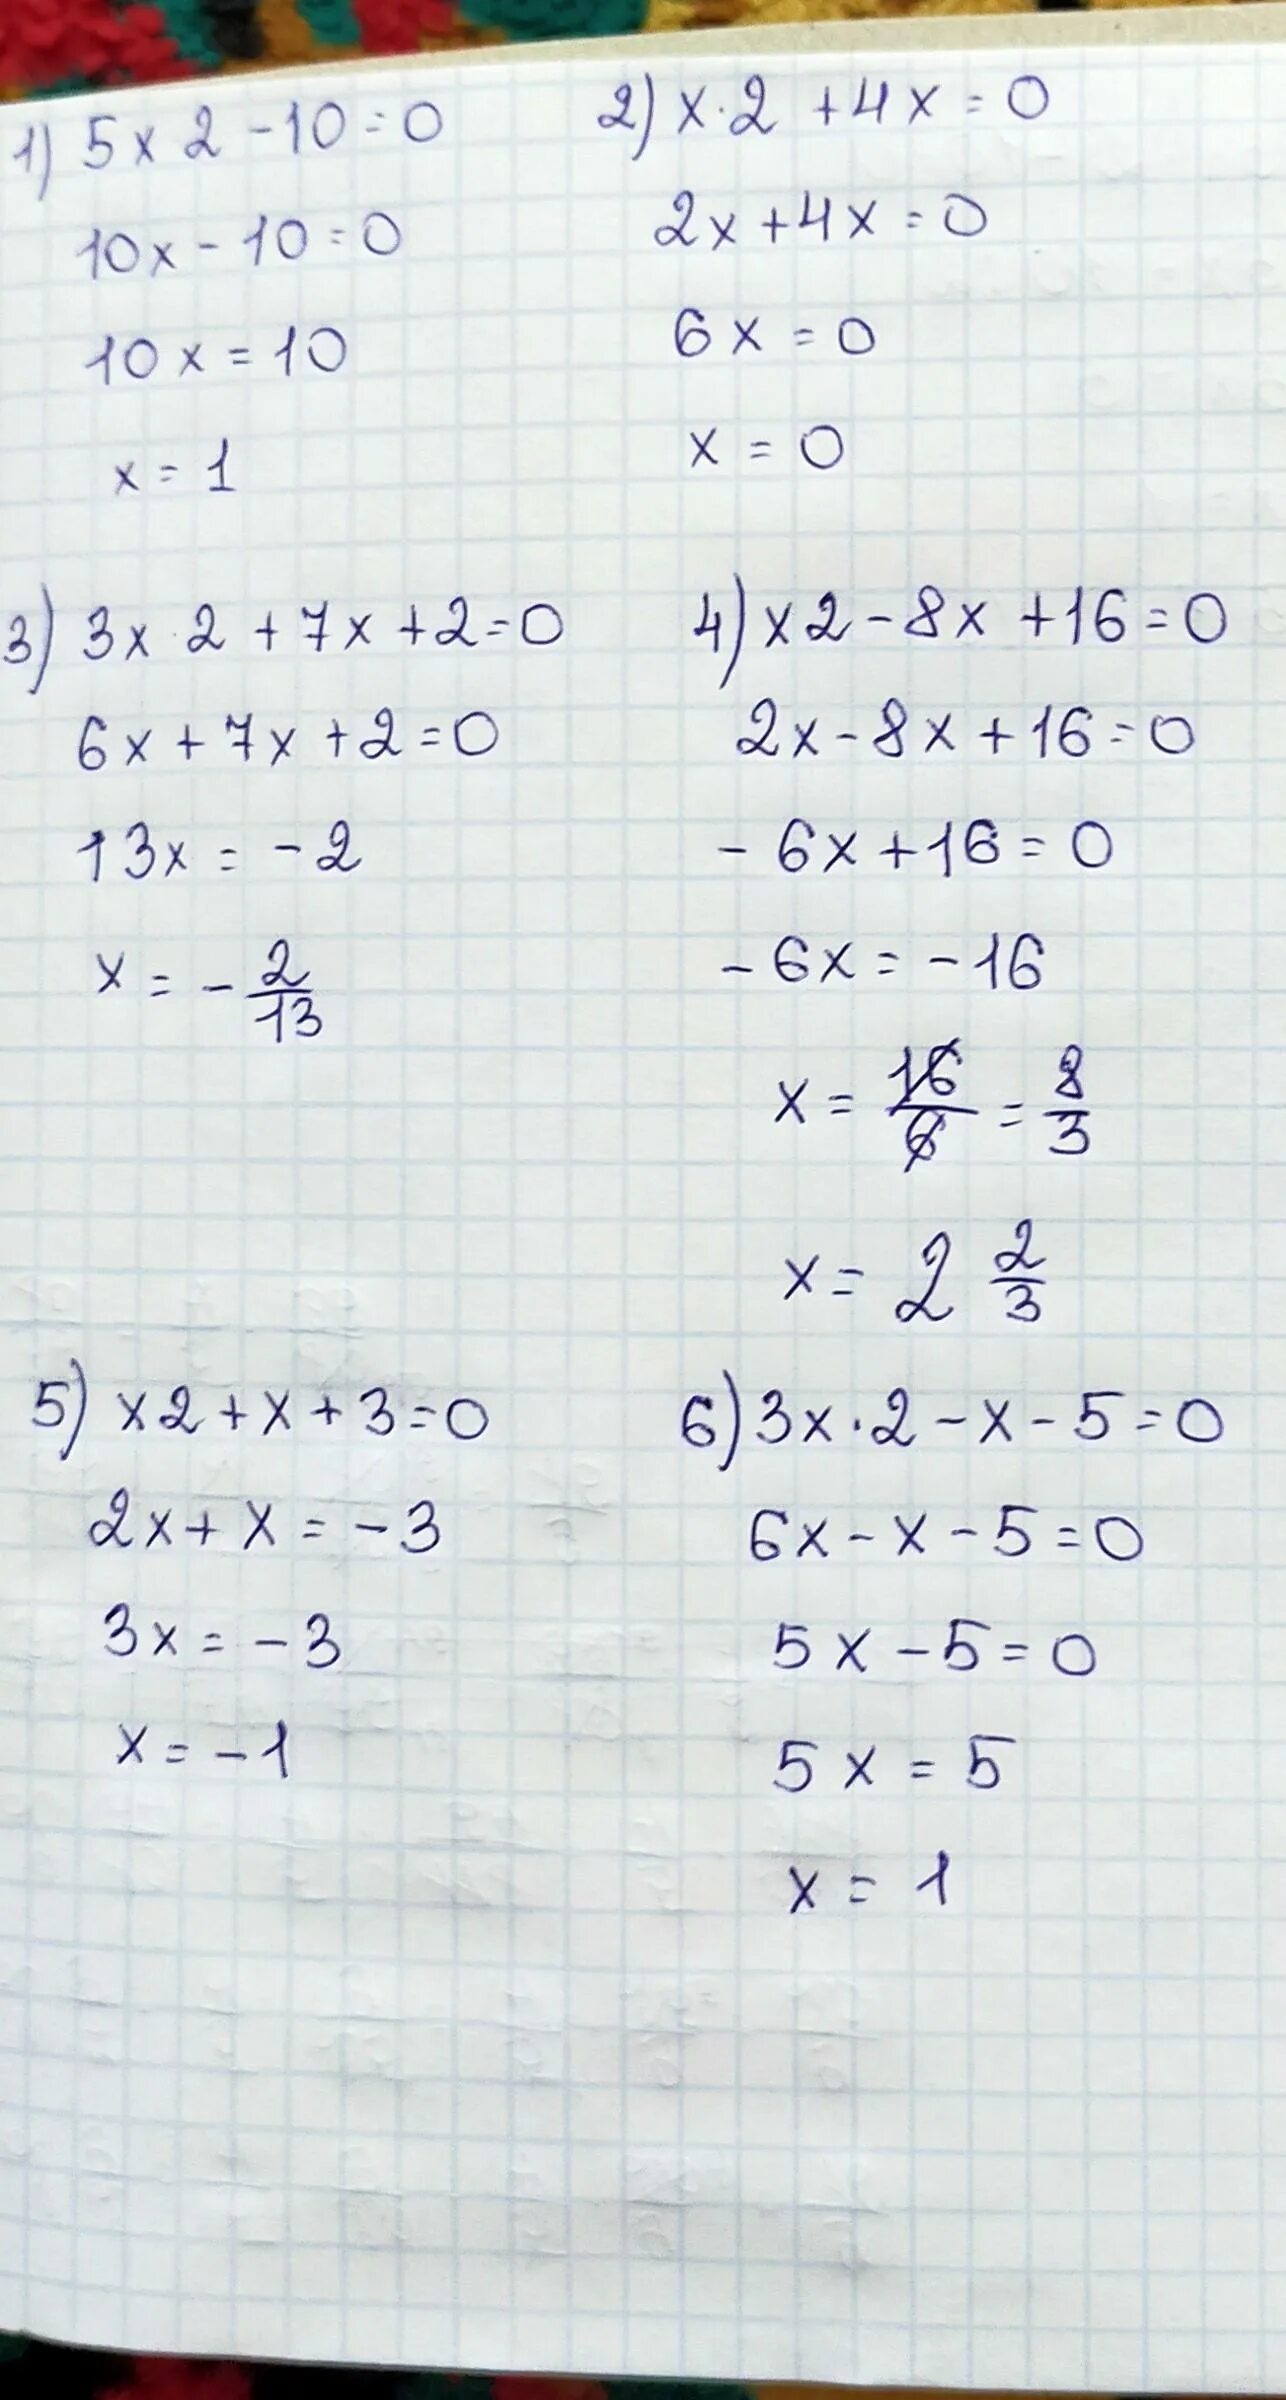 1) 5x 2 - 10 = 0
10x - 10 = 0
10x = 10
x = 1
2) x · 2 + 4x = 0
2x + 4x = 0
6x = 0
x = 0
3) 3x · 2 + 7x + 2 = 0
6x + 7x + 2 = 0
13x = -2
x = - 2/13
4) x2 - 8x + 16 = 0
2x - 8x + 16 = 0
- 6x + 16 = 0
- 6x = - 16
x = 16/6 = 8/3
x = 2 2/3
5) x2 + x + 3 = 0
2x + x = - 3
3x = - 3
x = - 1
6) 3x · 2 - x - 5 = 0
6x - x - 5 = 0
5x - 5 = 0
5x = 5
x = 1